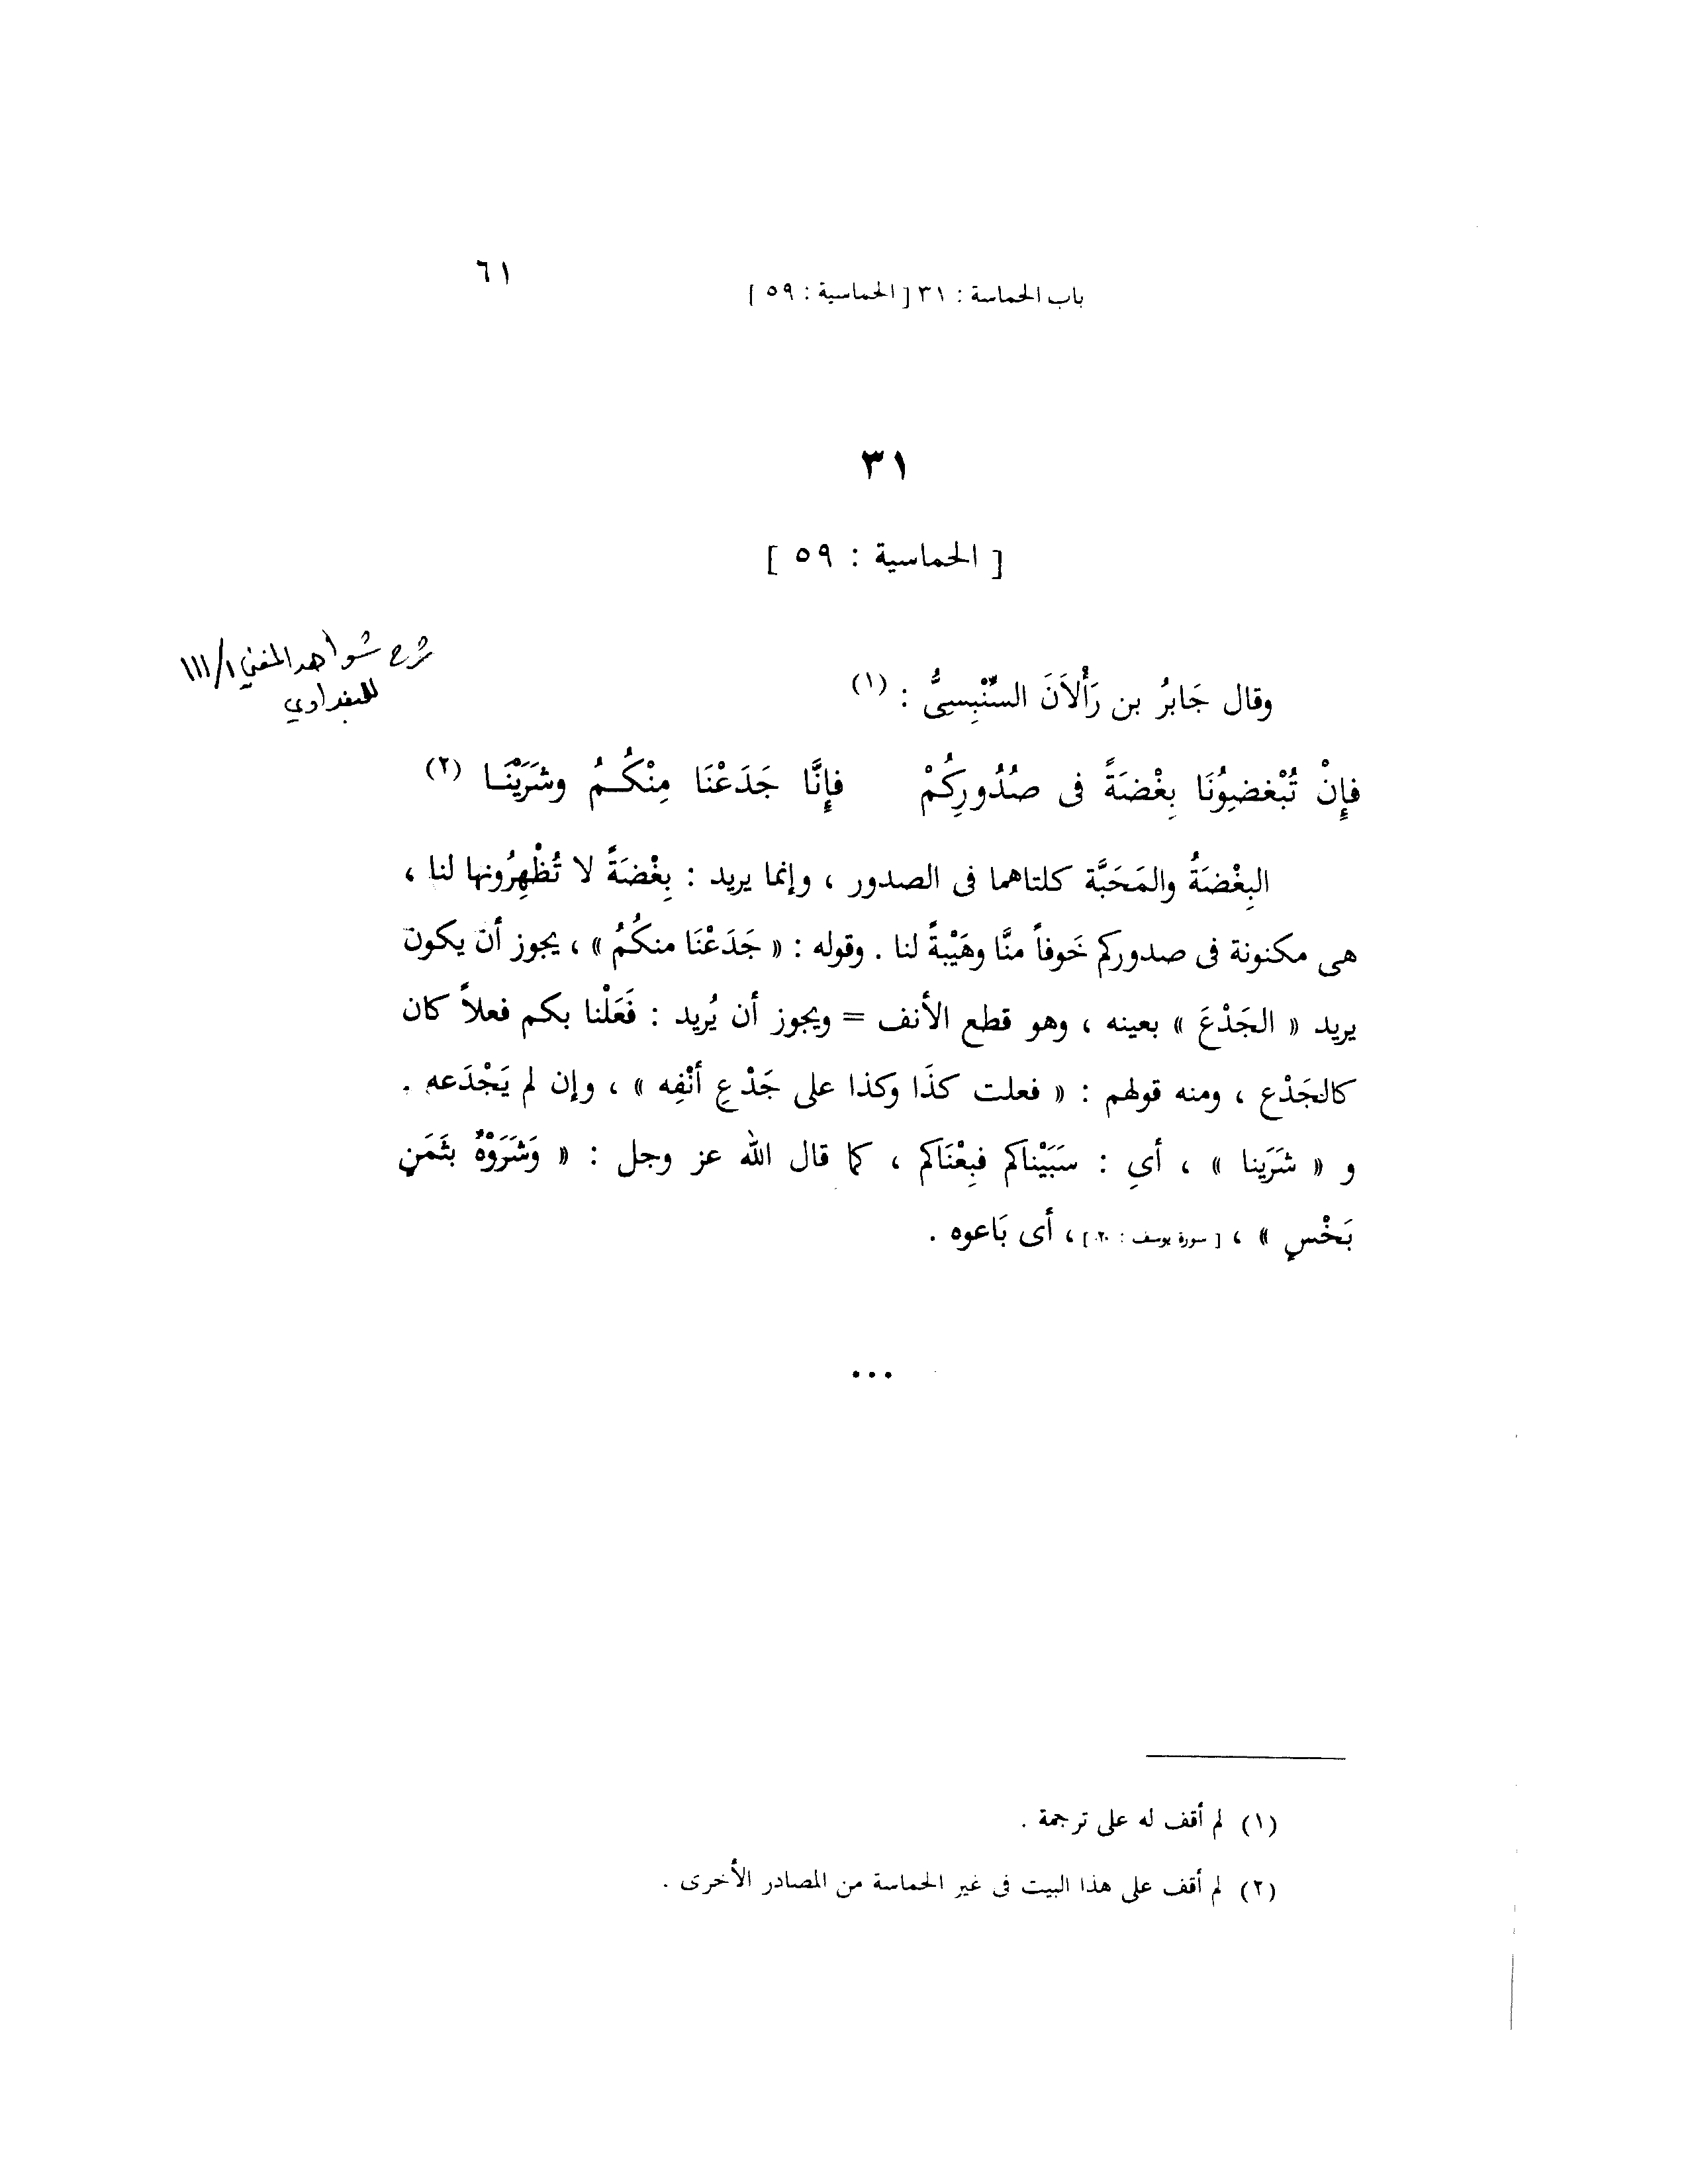 باب الحماسة : ٣١ [ الحماسية : ٥٩ ]
٦١
٣١
[ الحماسية : ٥٩ ]
شرح شواهد المغني ١/١١١
للبغدادي
وقال جَابرُ بن رَأْلاَنَ السِّنْبِسِىُّ : (١)
فإِنْ تُبْغضِوُنَا بِغْضَةً فى صُدُورِكُمْ فإِنَّا جَدَعْنَا مِنْكُـمُ وشَرَيْنَـا (٢)
البِغْضَةُ والمَحَبَّة كلتاهما فى الصدور ، وإنما يريد : بِغْضَةً لا تُظْهِرُونها لنا ،
هى مكنونة فى صدوركم خَوفاً منَّا وهَيْبةً لنا . وقوله : « جَدَعْنَا منكُمُ » ، يجوز أن يكون
يريد « الجَدْعَ » بعينه ، وهو قطع الأنف = ويجوز أن يُريد : فَعَلْنا بكم فعلاً كان
كالجَدْع ، ومنه قولهم : « فعلت كذَا وكذا على جَدْعِ أنْفِه » ، وإن لم يَجْدَعه .
و « شَرَينا » ، أىِ : سَبَيْناكم فبِعْنَاكم ، كما قال الله عز وجل : « وَشَرَوْهُ بثَمَنٍ
بَخْسٍ » ، [ سورة يوسف : ٢٠ ] ، أى بَاعوه .
...
(١) لم أقف له على ترجمة .
(٢) لم أقف على هذا البيت فى غير الحماسة من المصادر الأخرى .